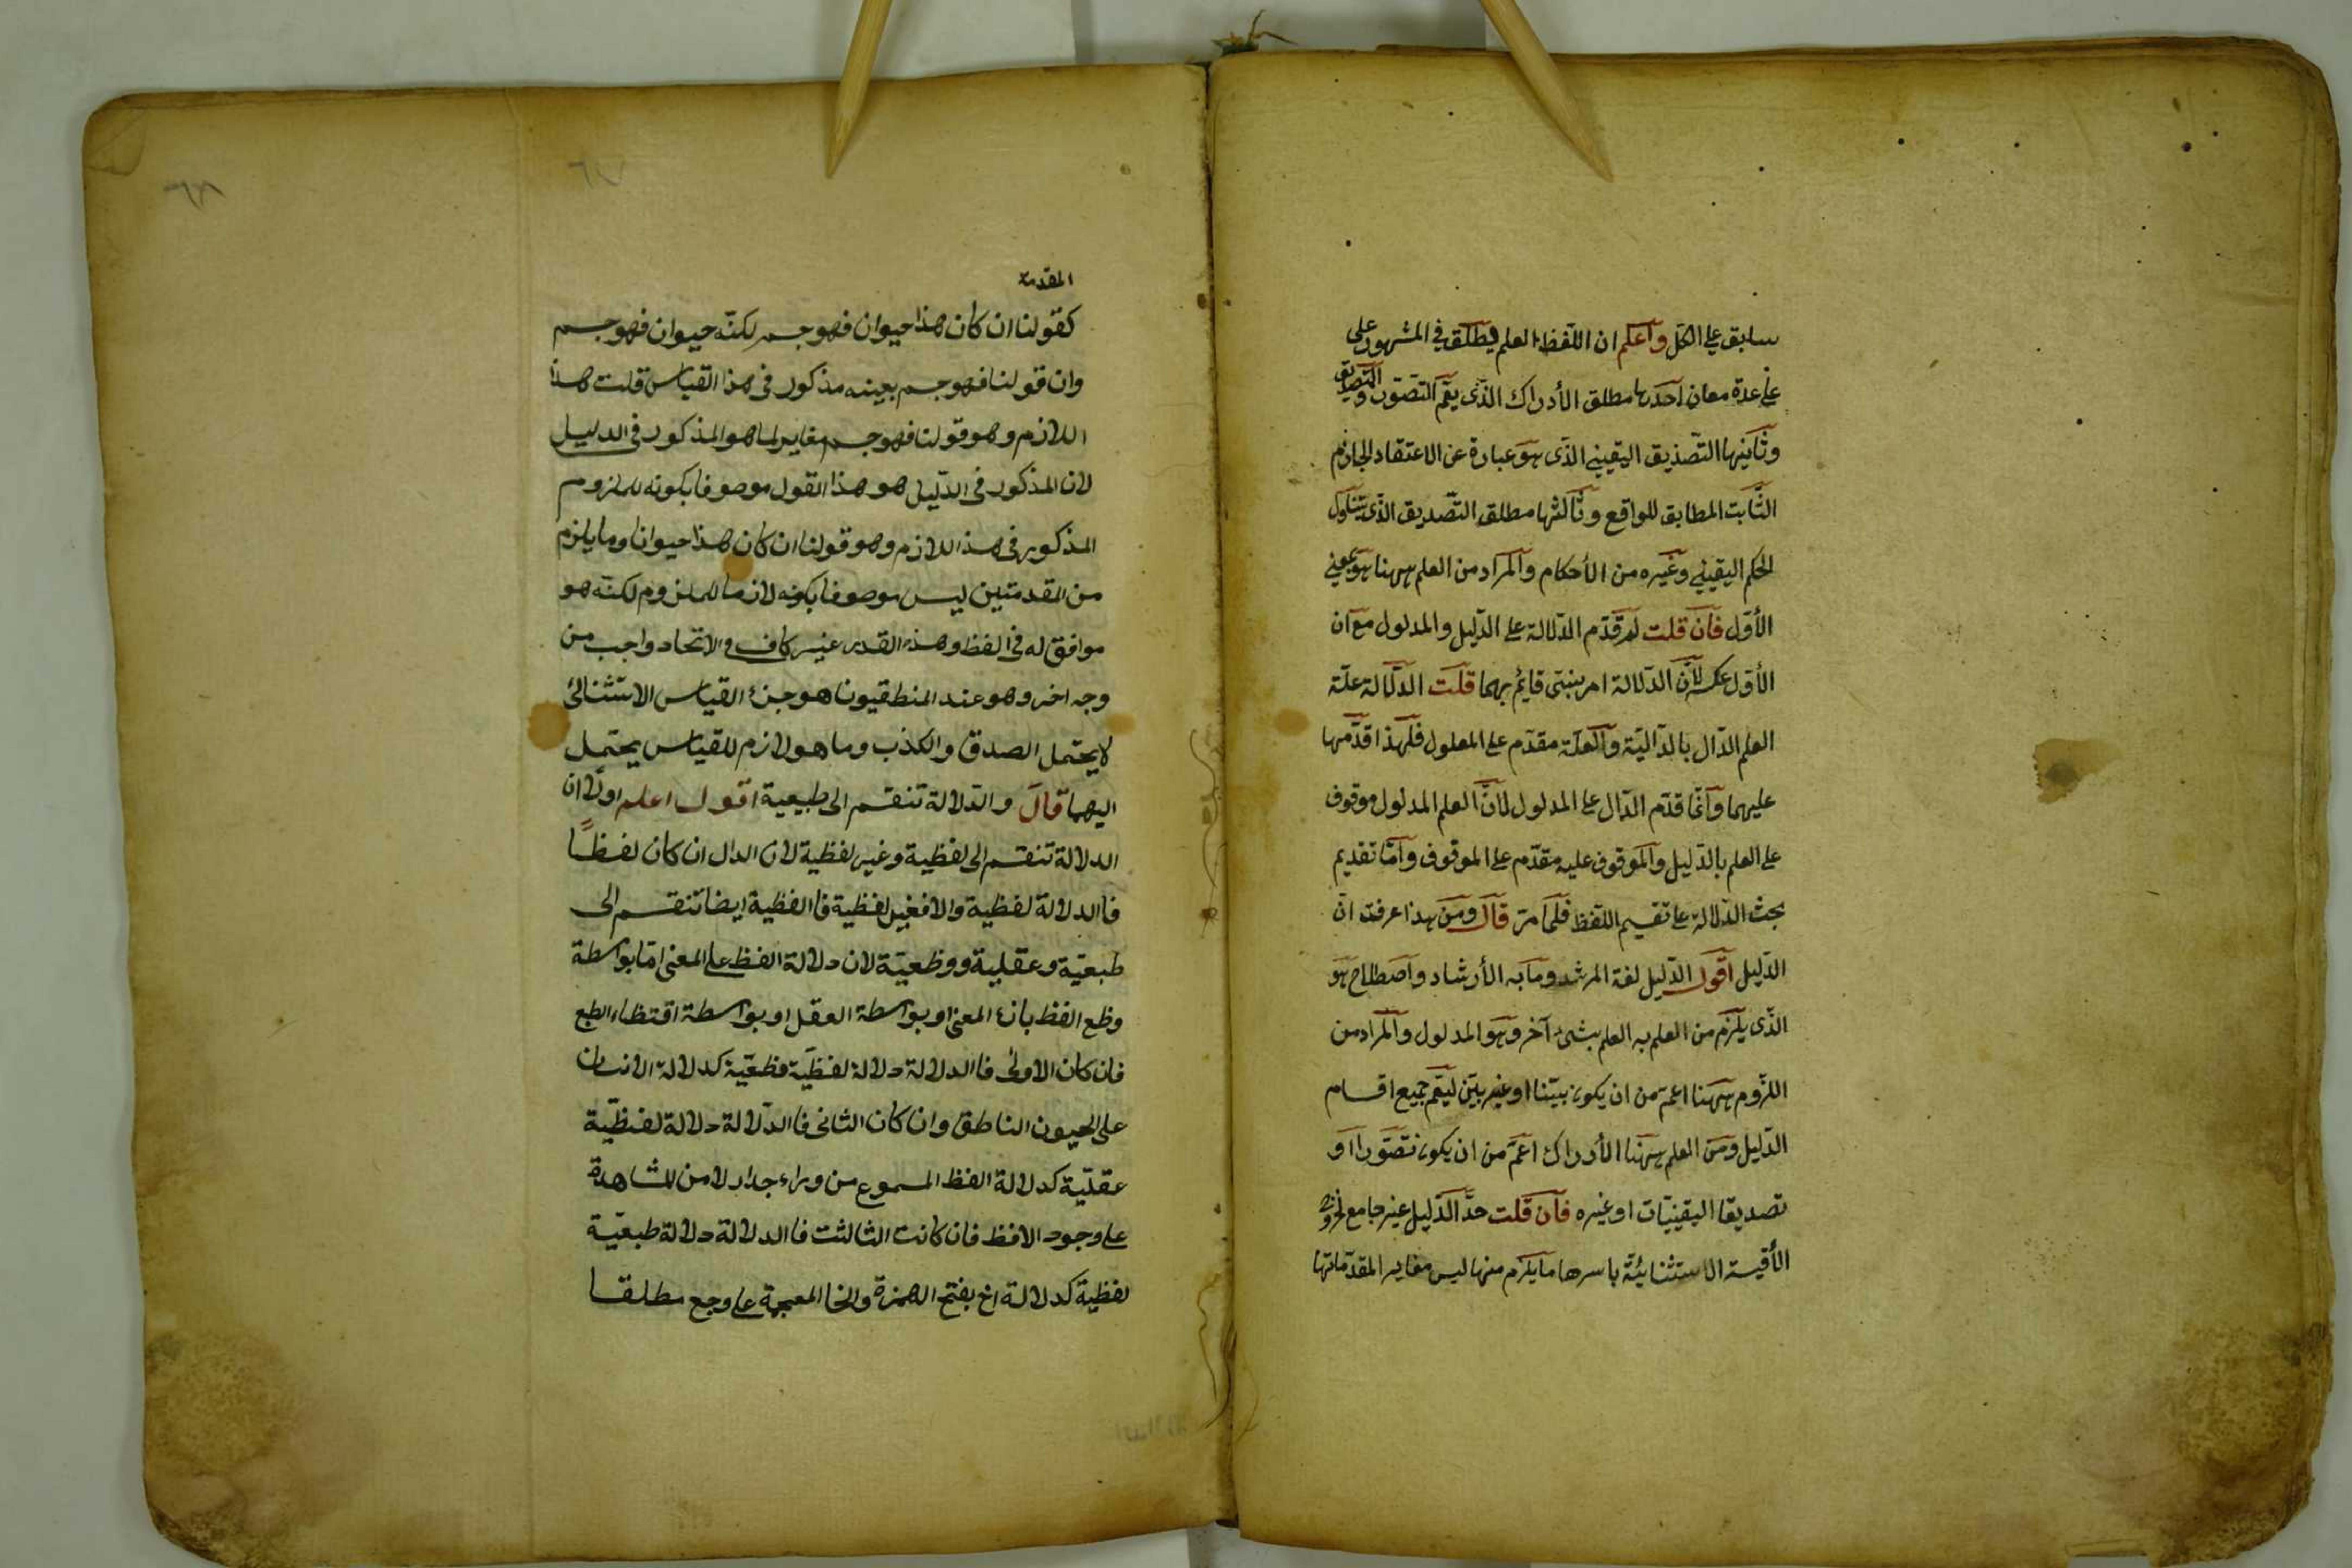 سابق على الكل وآعلم ان اللفظ العلم يطلق في المشهور على
على عدة معان آحدها مطلق الأدراك الذي يعم التصور والتصديق
وثانيها التصديق اليقيني الذي هو عبارة عن الاعتقاد الجازم
الثابت المطابق للواقع وثالثها مطلق التصديق الذي يتناول
الحكم اليقيني وغيره من الأحكام والمراد من العلم ههنا هو بمعني
الأول فان قلت لم قدم الدلالة على الدليل والمدلول مع ان
الأول عكسه لأن الدلالة امر ينبتي قائم بهما قلت الدلالة علة
العلم الدال بالدآلية والعلة مقدم على المعلول فلهذا قدمها
عليهما وآنما قدم الدال على المدلول لأن العلم المدلول موقوف
على العلم بالدليل والموقوف عليه مقدم على الموقوف وآما تقديم
بحث الدلالة على تقسيم اللفظ فلما مر قال ومن هذا عرفت ان
الدليل اقول الدليل لغة المرشد وما به الأرشاد واصطلاح هو
الذي يلزم من العلم به العلم بشيء آخر وهو المدلول والمراد من
اللزوم ههنا اعم من ان يكون بيتنا او غير بين ليعم جميع اقسام
الدليل ومن العلم ههنا الأدراك اعم من ان يكون تصورا او
تصديقا اليقينيات او غيره فان قلت حد الدليل غير جامع لخروج
الأقيسة الاستثنائية باسرها ما يلزم منها ليس مغاير المقدماتها
المقدمة
كقولنا ان كان هذا حيوان فهو جسم لكنه حيوان فهو جسم
وان قولنا فهو جسم بعينه مذكور في هذا القياس قلت هذا
اللازم وهو قولنا فهو جسم مغاير لما هو المذكور في الدليل
لان المذكور في الدليل هو هذا القول موصوفا بكونه للملزوم
المذكور في هذا اللازم وهو قولنا ان كان هذا حيوانا وما يلزم
من المقدمتين ليس موصوفا بكونه لازما للملزوم لكنه هو
موافق له في الفظ وهذه القدر غير كاف و الاتحاد واجب من
وجه اخر وهو عند المنطقيون ما هو جزء القياس الاستثنائي
لا يحتمل الصدق والكذب وما هو لازم للقياس يحتمل
اليهما قال والدلالة تنقسم الى طبيعية اقول اعلم اولا ان
الدلالة تنقسم الى لفظية وغير لفظية لان الدال ان كان لفظا
فا الدلالة لفظية والا فغير لفظية فا الفظية ايضا تنقسم الى
طبعية وعقلية ووظعية لان دلالة الفظ على المعنى اما بواسطة
وظع الفظ بازاء المعنى او بواسطة العقل او بواسطة اقتظاء الطبع
فان كان الاولى فا الدلالة دلالة لفظية وظعية كدلالة الانسان
على الحيون الناطق وان كان الثاني فا الدلالة دلالة لفظية
عقلية كدلالة الفظ المسموع من وراء جدار لا من المشاهدة
على وجود الافظ فان كانت الثالثت فا الدلالة دلالة طبعية
لفظية كدلالة اخ بفتح الهمزة والخا المعجمة على وجع مطلقا